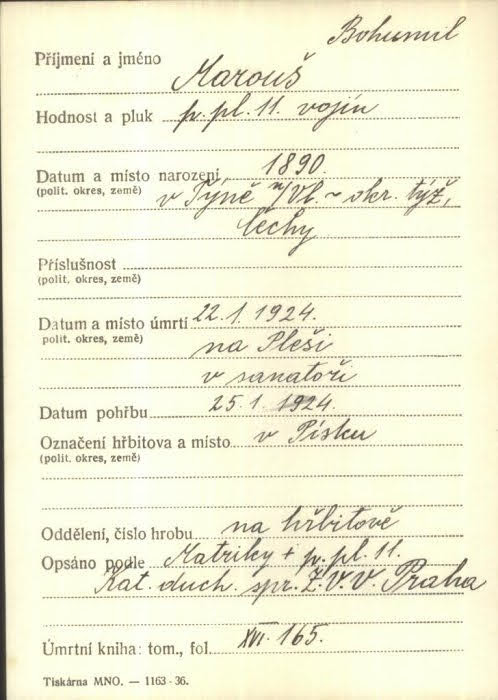 Bohumil
Příjmení a jméno
Marouš
Hodnost a pluk p. pl. 11. vojín
Datum a místo narození 1890.
(polit. okres, země) v Týně n/Vl. ~ okr. týž,
Čechy
Příslušnost
(polit. okres, země)
Datum a místo úmrtí 22. 1. 1924.
polit. okres, země) na Pleši
v sanatoři
Datum pohřbu 25. 1. 1924.
Označení hřbitova a místo v Písku
(polit. okres, země)
Oddělení, číslo hrobu na hřbitově
Opsáno podle Matriky + p. pl. 11.
Kat. duch. spr. Z. V. V. Praha
Úmrtní kniha: tom., fol. XVI. 165.
Tiskárna MNO. — 1163 - 36.